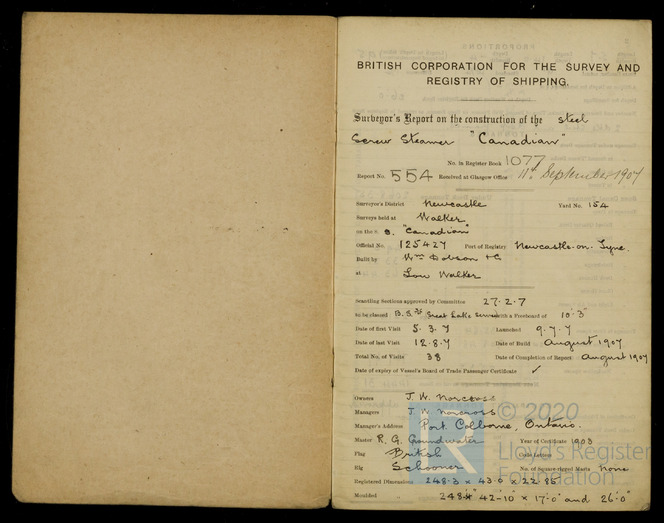 BRITISH CORPORATION FOR THE SURVEY AND
REGISTRY OF SHIPPING.
Surveyor's Report on the construction of the steel
Screw Steamer "Canadian"
No. in Register Book 1077
Report No. 554 Received at Glasgow Office 11th September 1907
Surveyor's District Newcastle Yard No. 154
Surveys held at Walker
on the S. S. "Canadian"
Official No. 125427 Port of Registry Newcastle-on-Tyne.
Built by Wm Dobson & Co
at Low Walker
Scantling Sections approved by Committee 27.2.7
to be classed B.S.* Great Lake Service with a Freeboard of 10'3"
Date of first Visit 5.3.7 Launched 9.7.7
Date of last Visit 12.8.7 Date of Build August 1907
Total No. of Visits 38 Date of Completion of Report August 1907
Date of expiry of Vessel's Board of Trade Passenger Certificate ✓
Owners J. W. Norcross
Managers J. W. Norcross
Manager's Address Port Colborne, Ontario.
Master R. G. Groundwater Year of Certificate 1903
Flag British Code Letters
Rig Schooner No. of Square-rigged Masts None
Registered Dimensions 248.3 x 43.0 x 22.85
Moulded 248'4" 42'-10" x 17'0" and 26'0"
© 2020
Lloyd's Register
Foundation